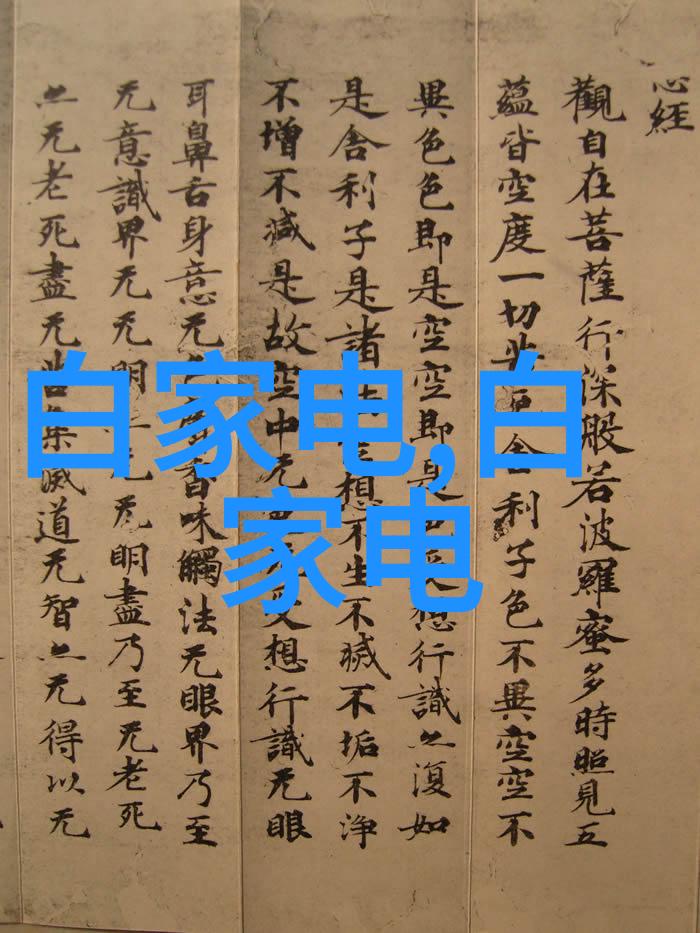 心經
觀自在菩薩行深般若波羅蜜多時照見五
蘊皆空度一切苦厄舍利子色不異空空不
異色色即是空空即是色受想行識亦復如
是舍利子是諸法空想不生不滅不垢不浄
不增不減是故空中无色无受想行識无眼
耳鼻舌身意无色聲香味觸法无眼界乃至
无意識界无无明亦无无明盡乃至无老死
亦无老死盡无苦集滅道无智亦无得以无
白家电,白
家电